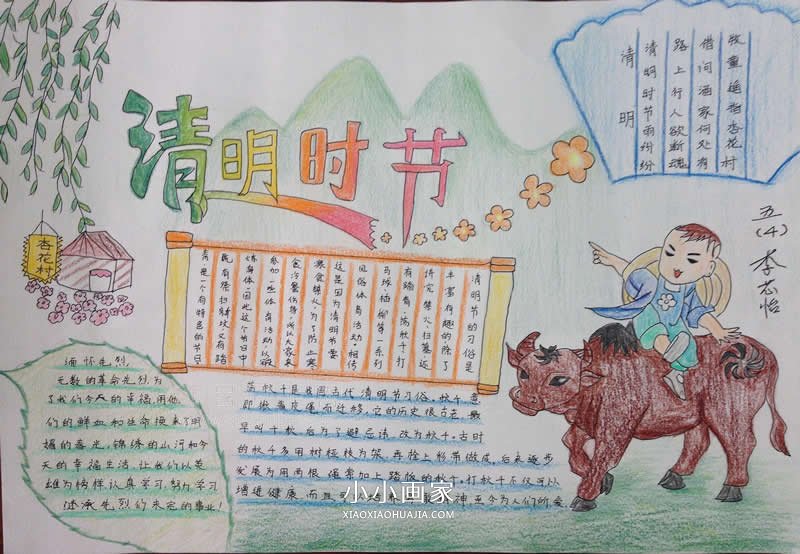 清明时节
清明
清明时节雨纷纷
路上行人欲断魂
借问酒家何处有
牧童遥指杏花村
五(4) 李芯怡
杏花村
清明节的习俗是
丰富有趣的,除了
讲究禁火、扫墓,还
有踏青、荡秋千、打
马球、插柳等一系列
风俗体育活动。相传
这是因为清明节要
寒食禁火,为了防止寒
食冷餐伤身,所以大家来
参加一些体育活动,以锻
炼身体。因此,这个节日中
既有祭扫新坟,又有踏
青,是一个有特色的节日。
缅怀先烈
无数的革命先烈为
了我们今天的幸福,用他
们的鲜血和生命换来了明
媚的春光,锦绣的山河和今
天的幸福生活,让我们以英
雄为榜样认真学习,努力学习
述承先烈们未完的事业!
荡秋千是我国古代清明节习俗,秋千,意
即揪着皮绳而迁移。它的历史很古老,最
早叫千秋,后为了避忌讳,改为秋千。古时
的秋千多用树桠枝为架,再拴上彩带做成,后来逐步
发展为用两根绳索加上踏板的秋千,打秋千不仅可以
增进健康,而且 神,至今为人们所爱
小小画家
XIAOXIAOHUAJIA.COM